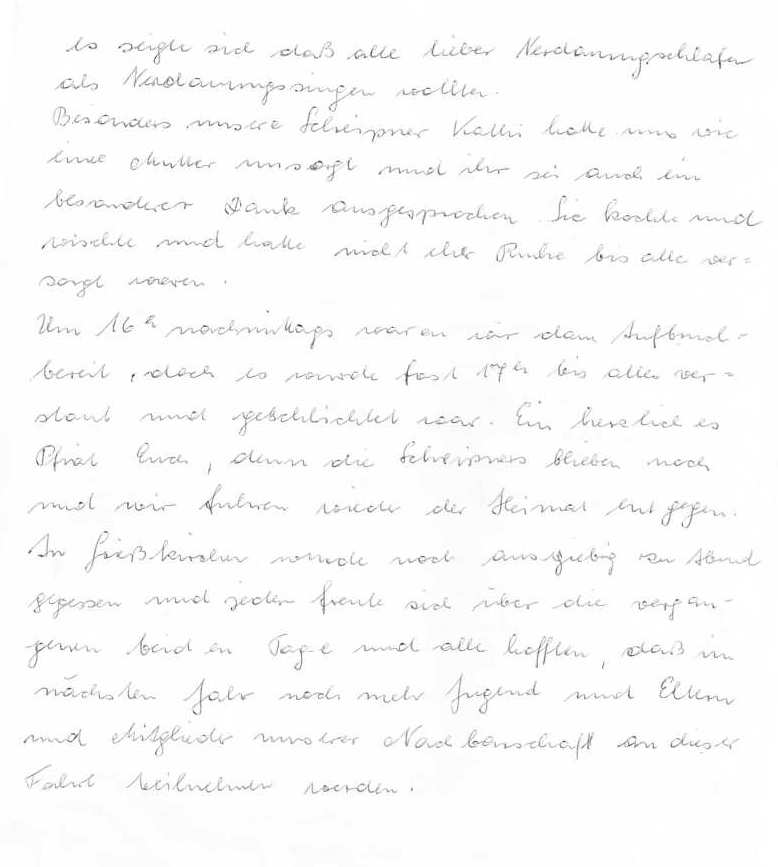 Es zeigte sich daß alle lieber Verdauungschlafen
als Verdauungssingen wollten.
Besonders unsere Scheipner Kathi hatte uns wie
eine Mutter umsorgt und ihr sei auch ein
besonderer Dank ausgesprochen. Sie kochte und
wischte und hatte nicht eher Ruhe bis alle ver=
sorgt waren.
Um 16 h nachmittags waren wir dann Aufbruch-
bereit, doch es wurde fast 17 h bis alles ver-
staut und geschlichtet war. Ein herzliches
Pfiat Euch, denn die Scheipners blieben noch
und wir fuhren wieder der Heimat entgegen.
In Gießkirchen wurde noch ausgiebig zu Abend
gegessen und jeder freute sich über die vergan-
genen beiden Tage und alle hofften, daß im
nächsten Jahr noch mehr Jugend und Eltern
und Mitglieder unserer Nachbarschaft an dieser
Fahrt teilnehmen werden.